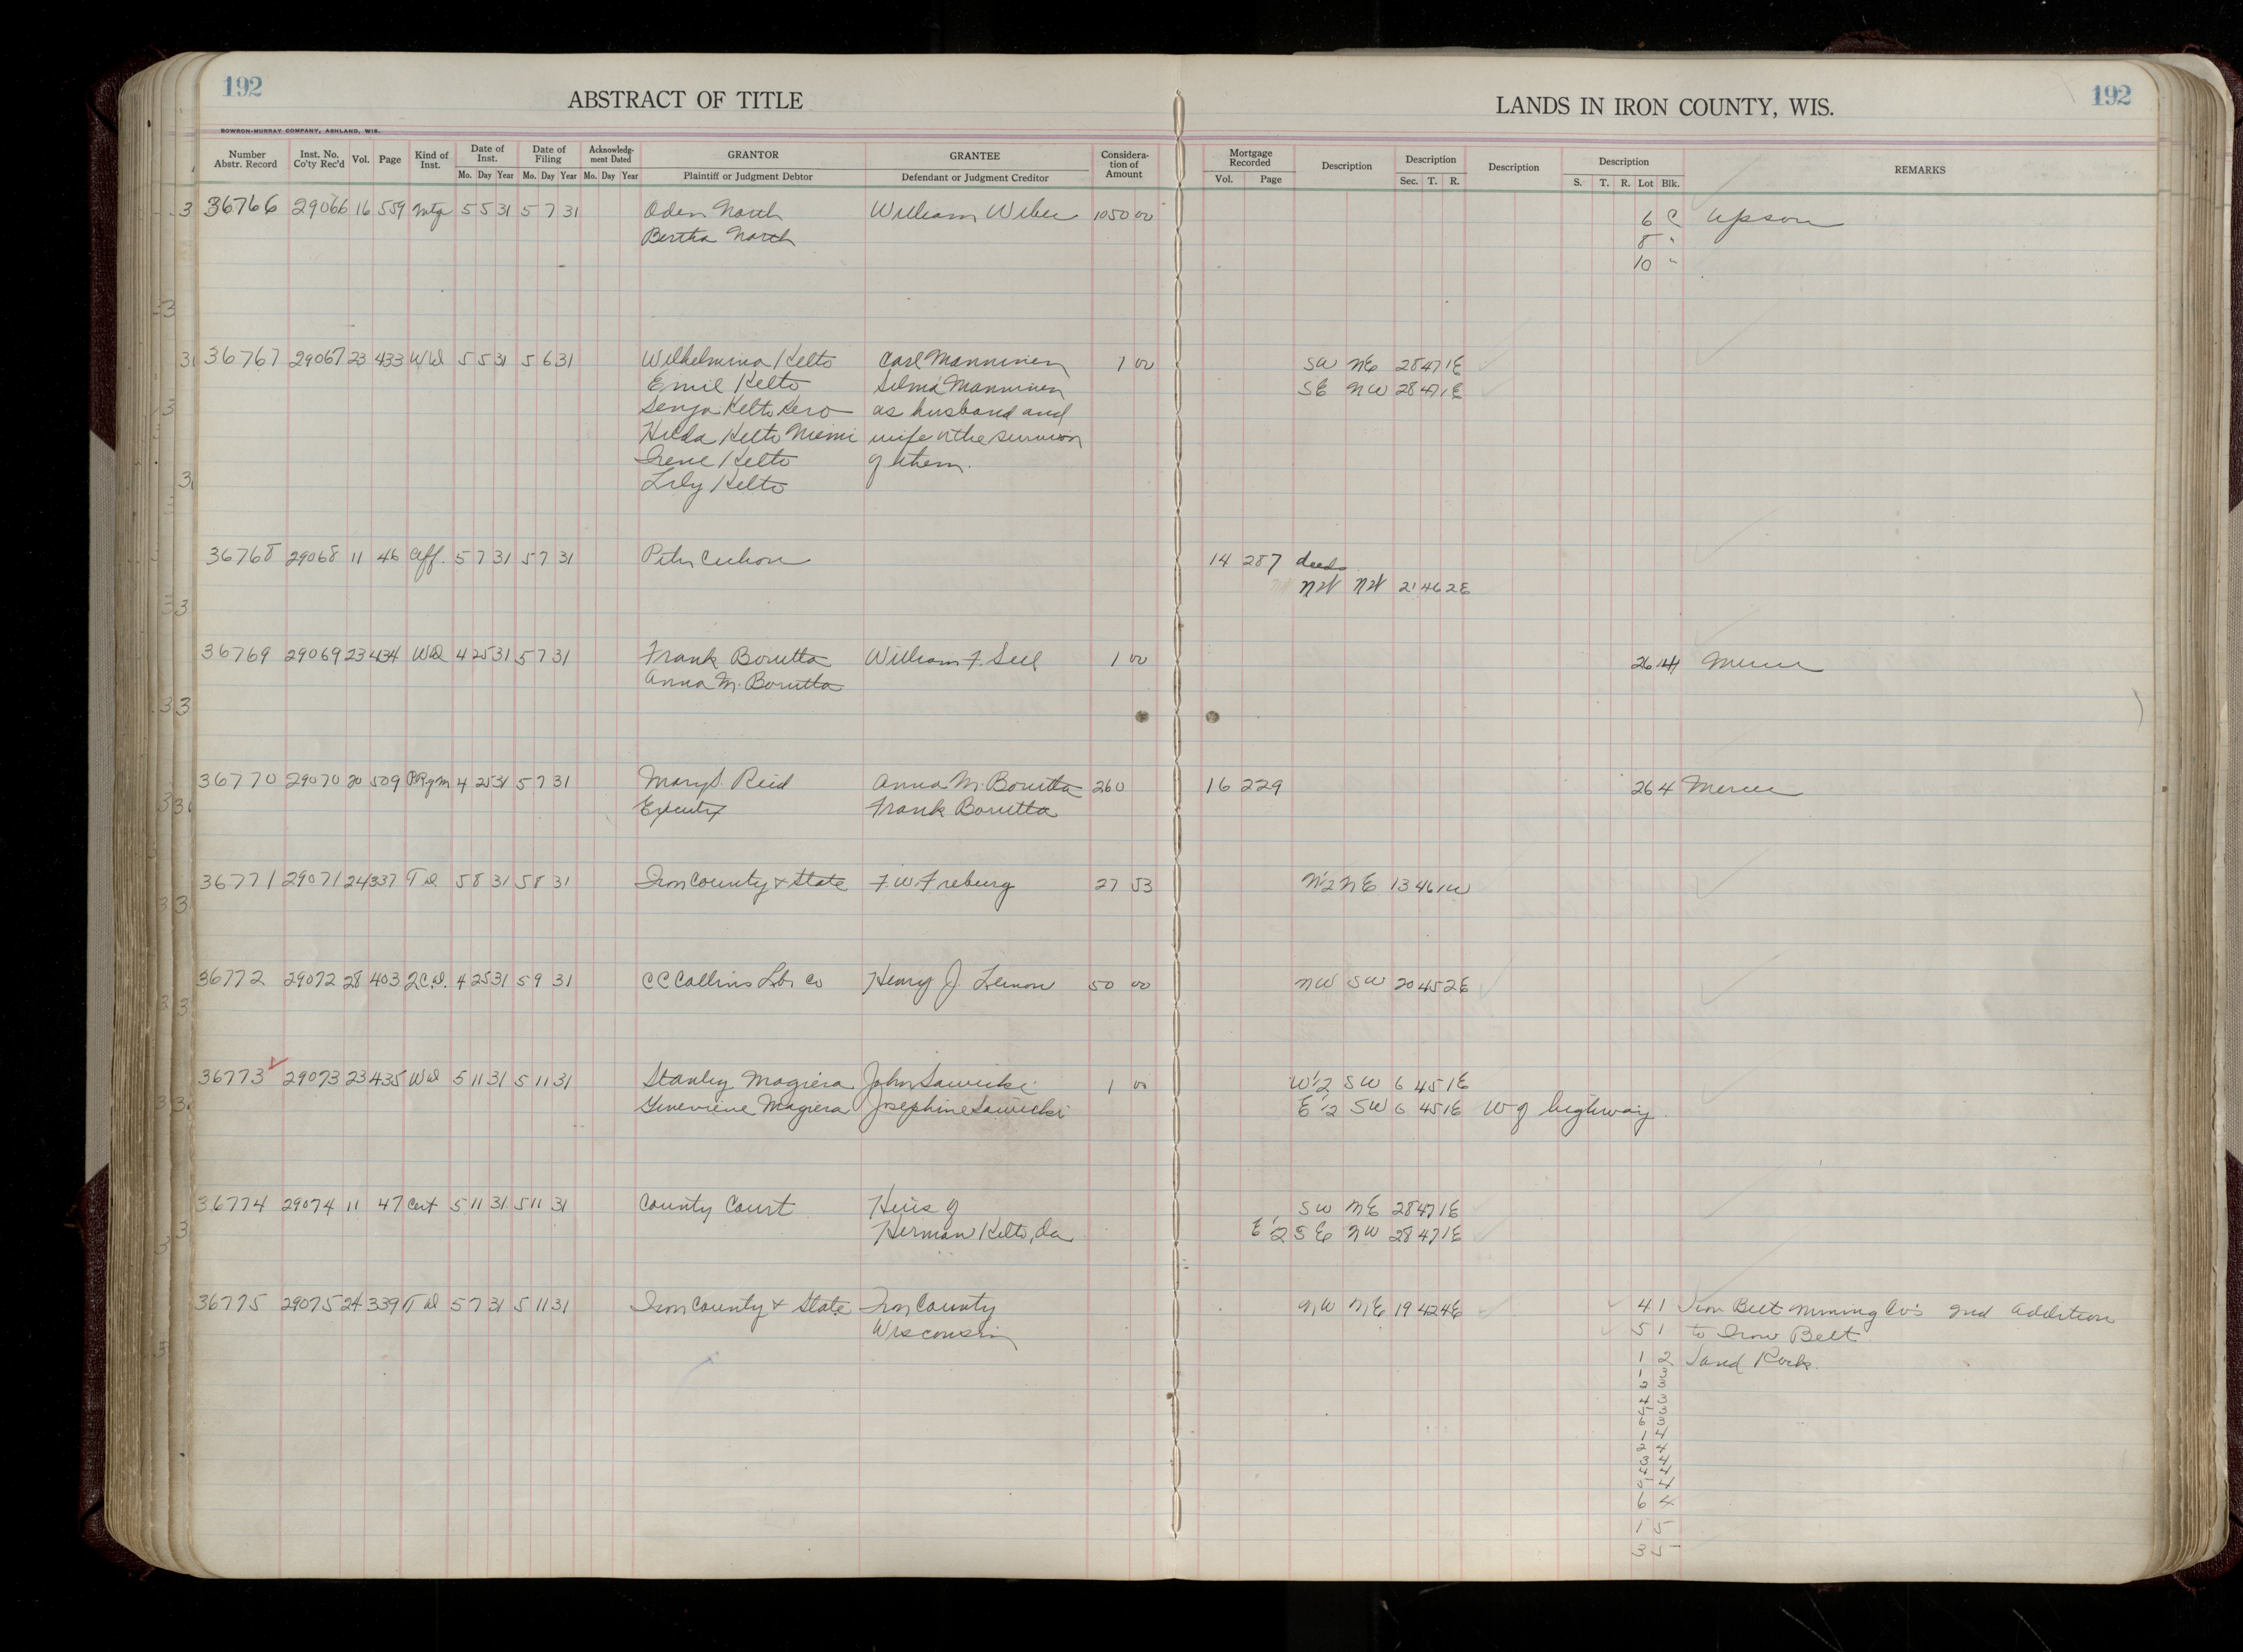 192
ABSTRACT OF TITLE
LANDS IN IRON COUNTY, WIS.
192
BOWRON-MURRAY COMPANY, ASHLAND, WIS.
Number Abstr. Record | Inst. No. Co'ty Rec'd | Vol. | Page | Kind of Inst. | Date of Inst. Mo. Day Year | Date of Filing Mo. Day Year | Acknowledg-ment Dated Mo. Day Year | GRANTOR Plaintiff or Judgment Debtor | GRANTEE Defendant or Judgment Creditor | Considera-tion of Amount | Mortgage Recorded Vol. Page | Description | Description Sec. T. R. | Description | Description S. T. R. Lot Blk. | REMARKS
36766 29066 16 559 Mtg 5 5 31 5 7 31 Oden North William Weber 1050 00 6 C Upson
Bertha North 8 "
10 "
36767 29067 23 433 WD 5 5 31 5 6 31 Wilhelmina Kelto Carl Manninen 1 00 SW NE 28 47 1E
Emil Kelto Selma Manninen SE NW 28 47 1E
Senja Kelto Kero as husband and
Hilda Kelto Niemi wife or the survivor
Irene Kelto of them.
Lily Kelto
36768 29068 11 46 Aff. 5 7 31 5 7 31 Peter 14 287 deeds
NW NW 21 46 2E
36769 29069 23 434 WD 4 25 31 5 7 31 Frank Borutta William F. 1 00 26 4 Mercer
Anna M. Borutta
36770 29070 20 509 4 25 31 5 7 31 Mary S. Reid Anna M. Borutta 260 16 229 26 4 Mercer
Executrix Frank Borutta
36771 29071 24 337 T D 5 8 31 5 8 31 Iron County & State F. W. Freburg 27 53 N1/2 NE 13 46 1W
36772 29072 28 403 QC.D. 4 25 31 5 9 31 C C Collins Lbr Co Henry J. Lemon 50 00 NW SW 20 45 2E
36773 29073 23 435 WD 5 11 31 5 11 31 Stanley Magiera John Sawicki 1 00 W1/2 SW 6 45 1E
Genevieve Magiera Josephine Sawicki E1/2 SW 6 45 1E W of highway
36774 29074 11 47 Cert 5 11 31 5 11 31 County Court Heirs of SW NE 28 47 1E
Herman Kelto, E1/2 SE NW 28 47 1E
36775 29075 24 339 T D 5 7 31 5 11 31 Iron County & State Iron County NW NE 19 42 4E 4 1 Iron Belt Mining Co's 2nd Addition
Wisconsin 5 1 to Iron Belt
1 2 Sand Rock.
1 3
2 3
4 3
5 3
6 3
1 4
2 4
3 4
4 4
5 4
6 4
1 5
3 5